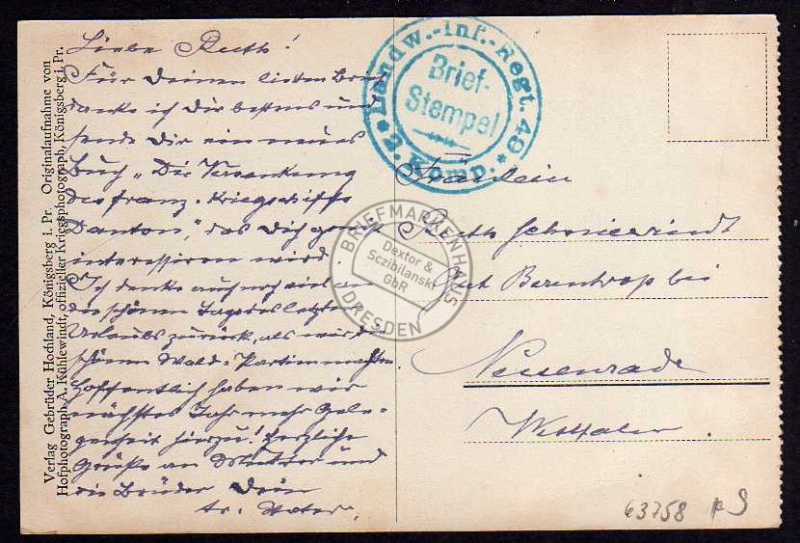 Liebe Ruth!
Für Deinen lieben Brief
danke ich Dir bestens und
sende Dir ein neues
Buch „Die Versenkung
des franz. Kriegsschiffs
Danton", das Dich gewiß
interessieren wird
Ich denke auch noch viel an
die schönen Tage des letzten
Urlaubs zurück, als wir die
schönen Wald-Partien machten
Hoffentlich haben wir
nächstes Jahr mehr Gele-
genheit hierzu! Herzliche
Grüße an Mutter und
die Brüder Dein
tr. Vater.
Verlag Gebrüder Hochland, Königsberg i. Pr. Originalaufnahme von
Hofphotograph A. Kühlewindt, offizieller Kriegsphotograph, Königsberg i. Pr.
Landw.-Inf.-Regt. 49
* 2. Komp. *
Brief-
Stempel
Fräulein
Ruth
Gut Berentrop bei
Neuenrade
Westfalen
BRIEFMARKENHAUS
Dextor &
Sczibilanski
GbR
DRESDEN
63758